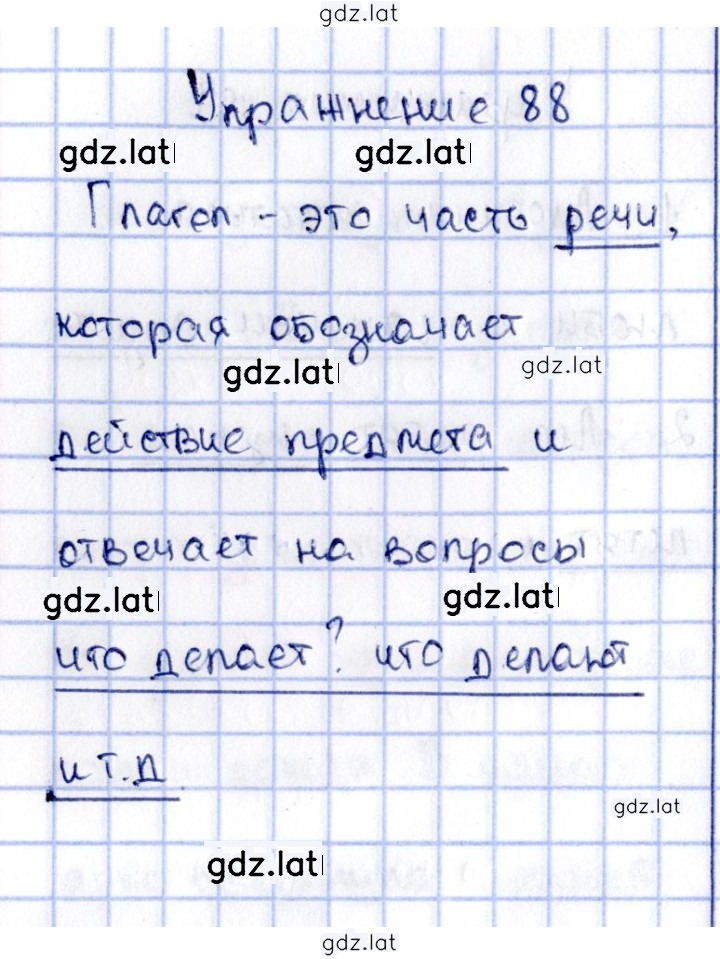 gdz.lat
Упражнение 88
gdz.lat gdz.lat
Глагол - это часть речи,
которая обозначает
gdz.lat gdz.lat
действие предмета и
отвечает на вопросы
gdz.lat gdz.lat
что делает? что делают
и т.д
gdz.lat
gdz.lat
gdz.lat